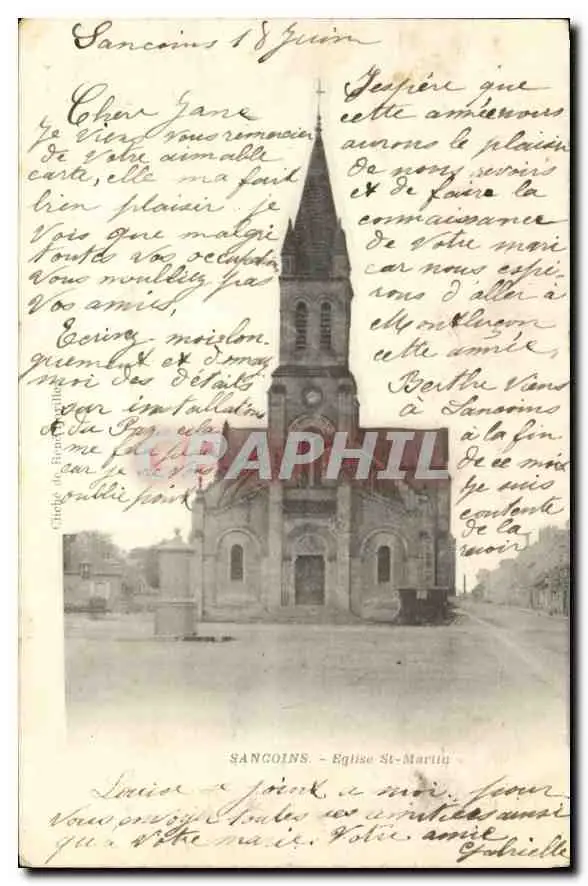 Sancoins 18 Juin
Chère Jane
Je viens vous remercier
de votre aimable
carte, elle ma fait
bien plaisir je
vois que malgré
toutes vos occupations
vous moubliez pas
vos amies,
Ecrivez moi lon-
guement et d
moi des détails
sur installation
et du Pay cela
me fera
car je
oublie point
J'espère que
cette année nous
aurons le plaisir
de nous revoirs
et de faire la
connaissance
de votre mari
car nous espé-
rons d'aller à
Montluçon
cette année,
Berthe viens
à Sancoins
à la fin
de ce mois
je suis
contente
de la
revoir
CPARPHIL
Cliché de René
SANCOINS. - Eglise St-Martin
Louise se joint a moi. pour
vous envoyer toutes ses amitiées ainsi
qu'a votre marie. Votre amie
Gabrielle